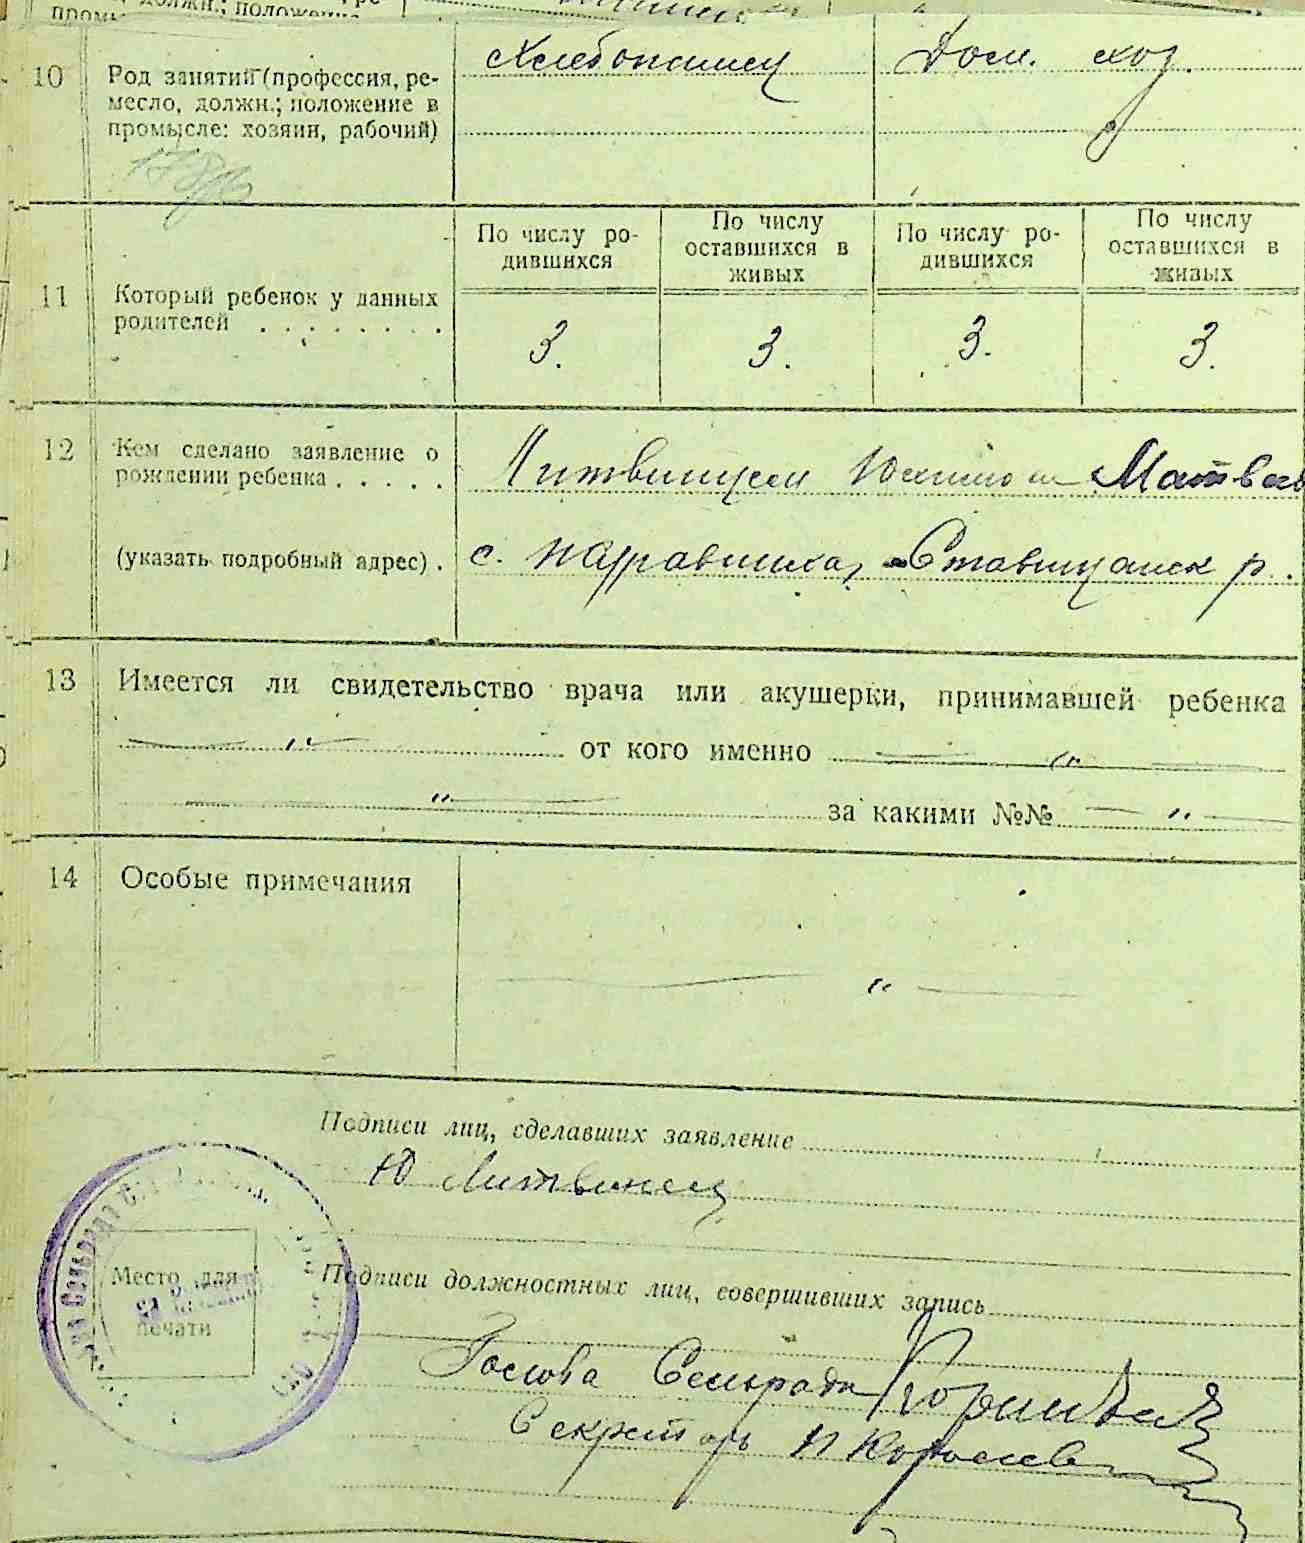 10 Род занятий (профессия, ре-
месло, должн.; положение в
промысле: хозяин, рабочий)
Хлебопашец
Дом. хоз.
11 Который ребенок у данных
родителей . . . . . . . .
По числу ро-
дившихся
По числу
оставшихся в
живых
По числу ро-
дившихся
По числу
оставшихся в
живых
3. 3. 3. 3.
12 Кем сделано заявление о
рождении ребенка . . . . .
Литвинцем Матвеев
(указать подробный адрес) . с. Журавлиха, Ставищанск р.
13 Имеется ли свидетельство врача или акушерки, принимавшей ребенка
— " — от кого именно — " —
— " — за какими №№ — " —
14 Особые примечания
— " —
Подписи лиц, сделавших заявление
Ю Литвинец
Место для
печати
Подписи должностных лиц, совершивших запись
Голова Сельради
Секретарь